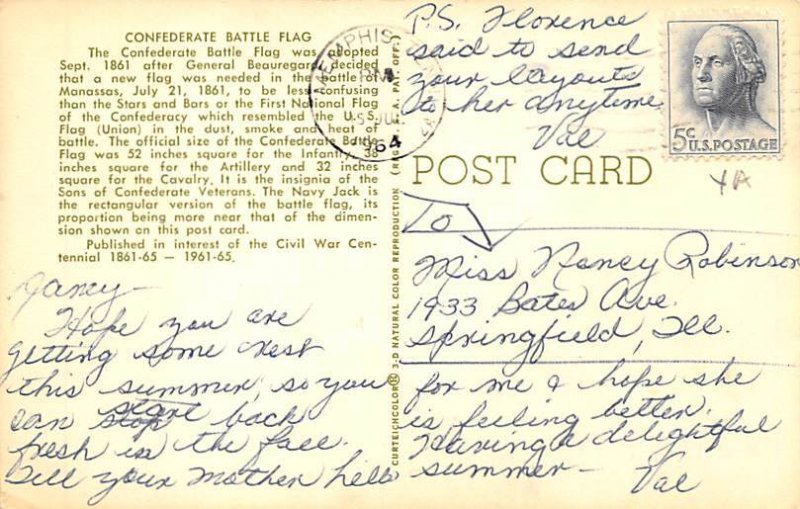 CONFEDERATE BATTLE FLAG
The Confederate Battle Flag was adopted
Sept. 1861 after General Beauregard decided
that a new flag was needed in the battle of
Manassas, July 21, 1861, to be less confusing
than the Stars and Bars or the First National Flag
of the Confederacy which resembled the U.S.
Flag (Union) in the dust, smoke and heat of
battle. The official size of the Confederate Battle
Flag was 52 inches square for the Infantry, 38
inches square for the Artillery and 32 inches
square for the Cavalry. It is the insignia of the
Sons of Confederate Veterans. The Navy Jack is
the rectangular version of the battle flag, its
proportion being more near that of the dimen-
sion shown on this post card.
Published in interest of the Civil War Cen-
tennial 1861-65 — 1961-65.
Nancy—
Hope you are
getting some rest
this summer, so you
can stop start back
fresh in the face.
Tell your Mother hello
MEMPHIS
PM
5 JUL
1964
CURTEICHCOLOR® 3-D NATURAL COLOR REPRODUCTION (REG. U.S.A. PAT. OFF.)
P.S. Florence
said to send
your layouts
to her anytime
Val
5c U.S. POSTAGE
POST CARD
YA
To
Miss Nancy Robinson
1933 Bates Ave.
Springfield, Ill.
for me & hope she
is feeling better.
Having a delightful
summer—
Val